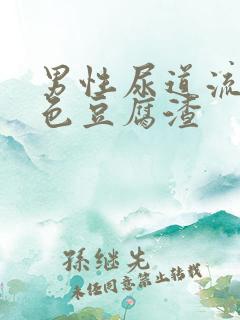 男性尿道流
色豆腐渣
孫继先
未经同意禁止转载